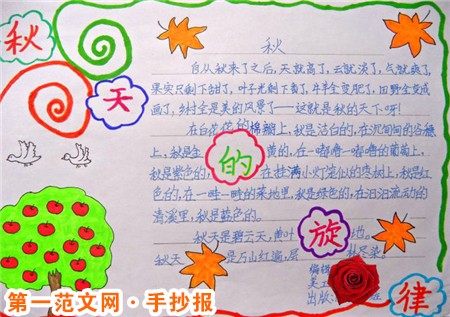 秋
天
的
旋
律
秋
自从秋来了之后,天就高了,云就淡了,气就爽了,
果实只剩下甜了,叶子光剩下黄了,牛羊全变肥了,田野全变成
画了,乡村全是美的风景了——这就是秋的天下呀!
在白花花的棉朵上,秋是洁白的,在沉甸甸的谷穗
上,秋是金黄的,在一嘟噜一嘟噜的葡萄上,
秋是紫色的,在挂满小灯笼似的枣树上,秋是红
色的,在一畦一畦的菜地里,秋是绿色的,在汩汩流动的
清溪里,秋是蓝色的。
秋天是碧云天,黄叶地。
秋天是万山红遍,层林尽染。
编辑
美工
出版:
第一范文网·手抄报